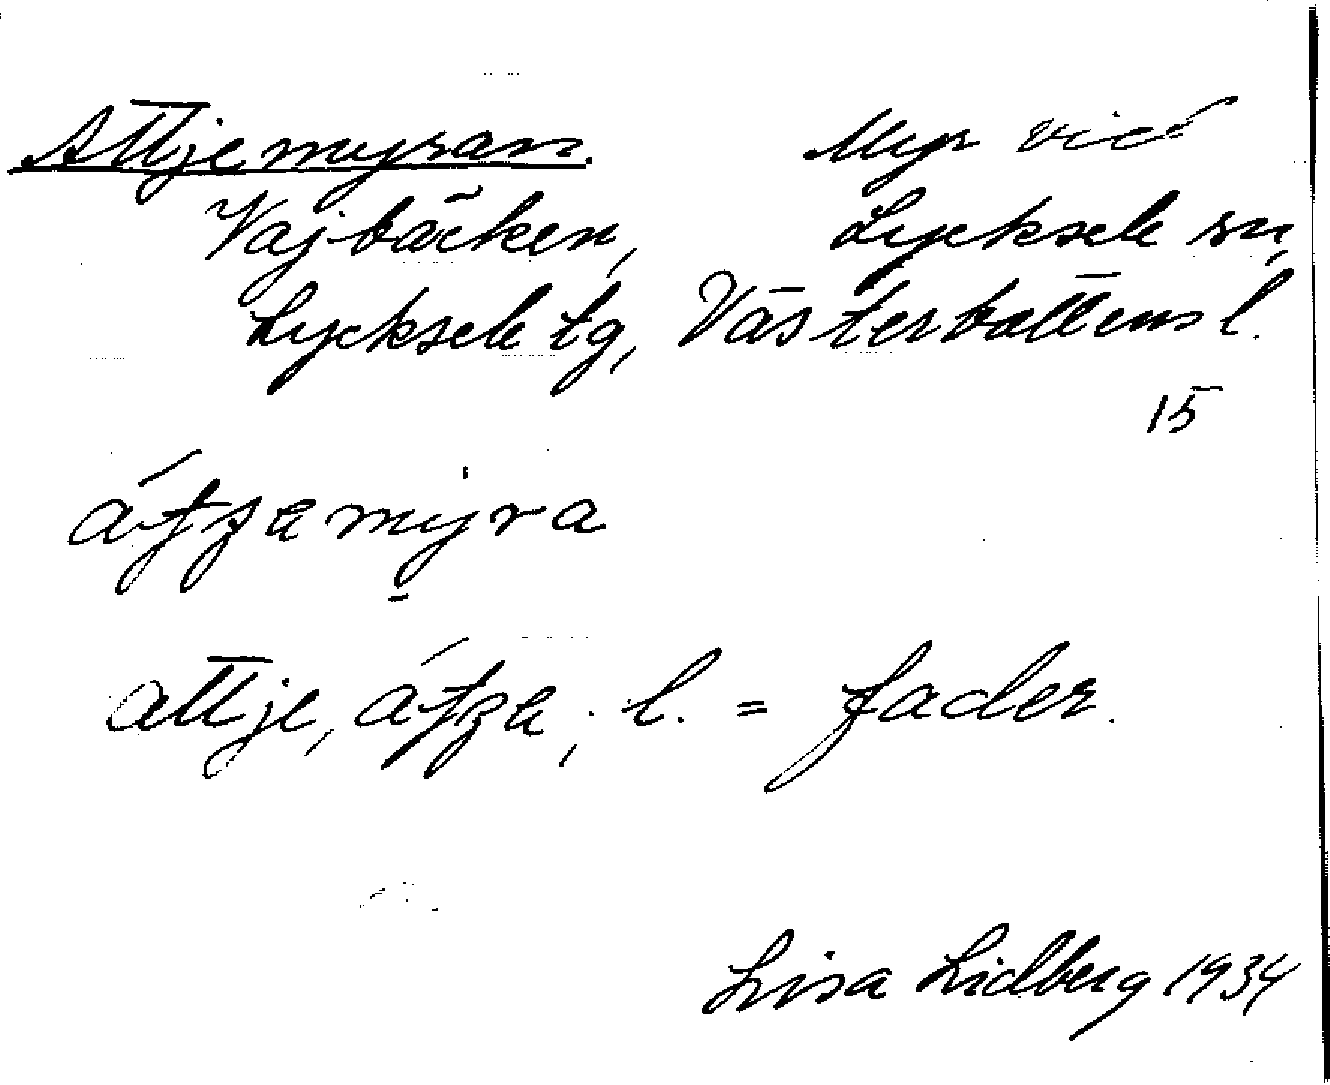 Attjemyran. Myr vid
Vajbäcken, Lycksele sn,
Lycksele tg, Västerbottens l.
15
átȷamyra
attje, l. = fader.
Lisa Lidberg 1934